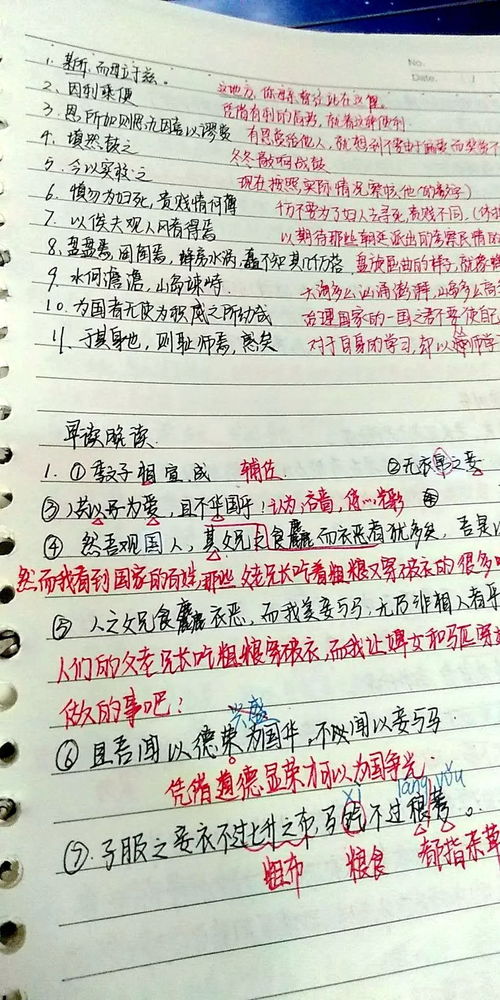 No.
Date.
1. 某所,而母立于兹。
2. 因利乘便 这地方,你母亲曾经站在这里。
3. 恩所加则思无因喜以谬赏 凭借有利的局势,就着这种便利
4. 填然鼓之 有恩惠给他人,就想到不要由于
5. 今以实校之 冬冬敲响战鼓
6. 慎勿为妇死,贵贱情何薄 现在按照实际情况察核他(的著字)
7. 以俟夫观人风者得焉 千万不要为了妇人寻死,贵贱不同,
8. 盘盘焉,囷囷焉,蜂房水涡,矗不知其几千万落 以期待那些朝廷派出的考察民情的
9. 水何澹澹,山岛竦峙. 盘旋屈曲的样子,就象蜂
10. 为国者无使为积威之所劫哉 大海多么汹涌澎湃,山岛多么高
11. 于其身也,则耻师焉,惑矣 治理国家的一国之君不要使自己
对于自身的学习,却以跟师学
早读晚读.
1. ①季文子相宣,成 辅佐. ②无衣帛之妾
③人其以子为爱,且不华国乎! 认为,吝啬,使…光彩
④ 然吾观国人,其父兄食麤而衣恶者犹多矣,吾是以
然而我看到国家的百姓,那些父老兄长吃着粗粮又穿破衣的很多
⑤ 人之父兄食麤衣恶,而我美妾与马,无乃非相人者乎
人们的父老兄长吃粗粮穿破衣,而我让婢女和马匹穿
做人的事吧?
兴盛
⑥ 且吾闻以德荣为国华,不以闻以妾与马.
凭借道德显荣才可以为国争光.
xì láng yǒu
⑦.子服之妾衣不过七升之布,马饩不过稂莠。
粗布 粮食 都指杂草